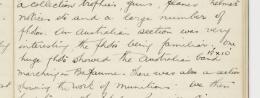 a collection trophies, guns, planes helmets
notices etc and a large number of
photos. An Australian section was very
interesting the photos being familiar; one
huge photo showed the Australian band 17 x 10
marching in Bapaume. There was also a section
showing the work of munitions. We then